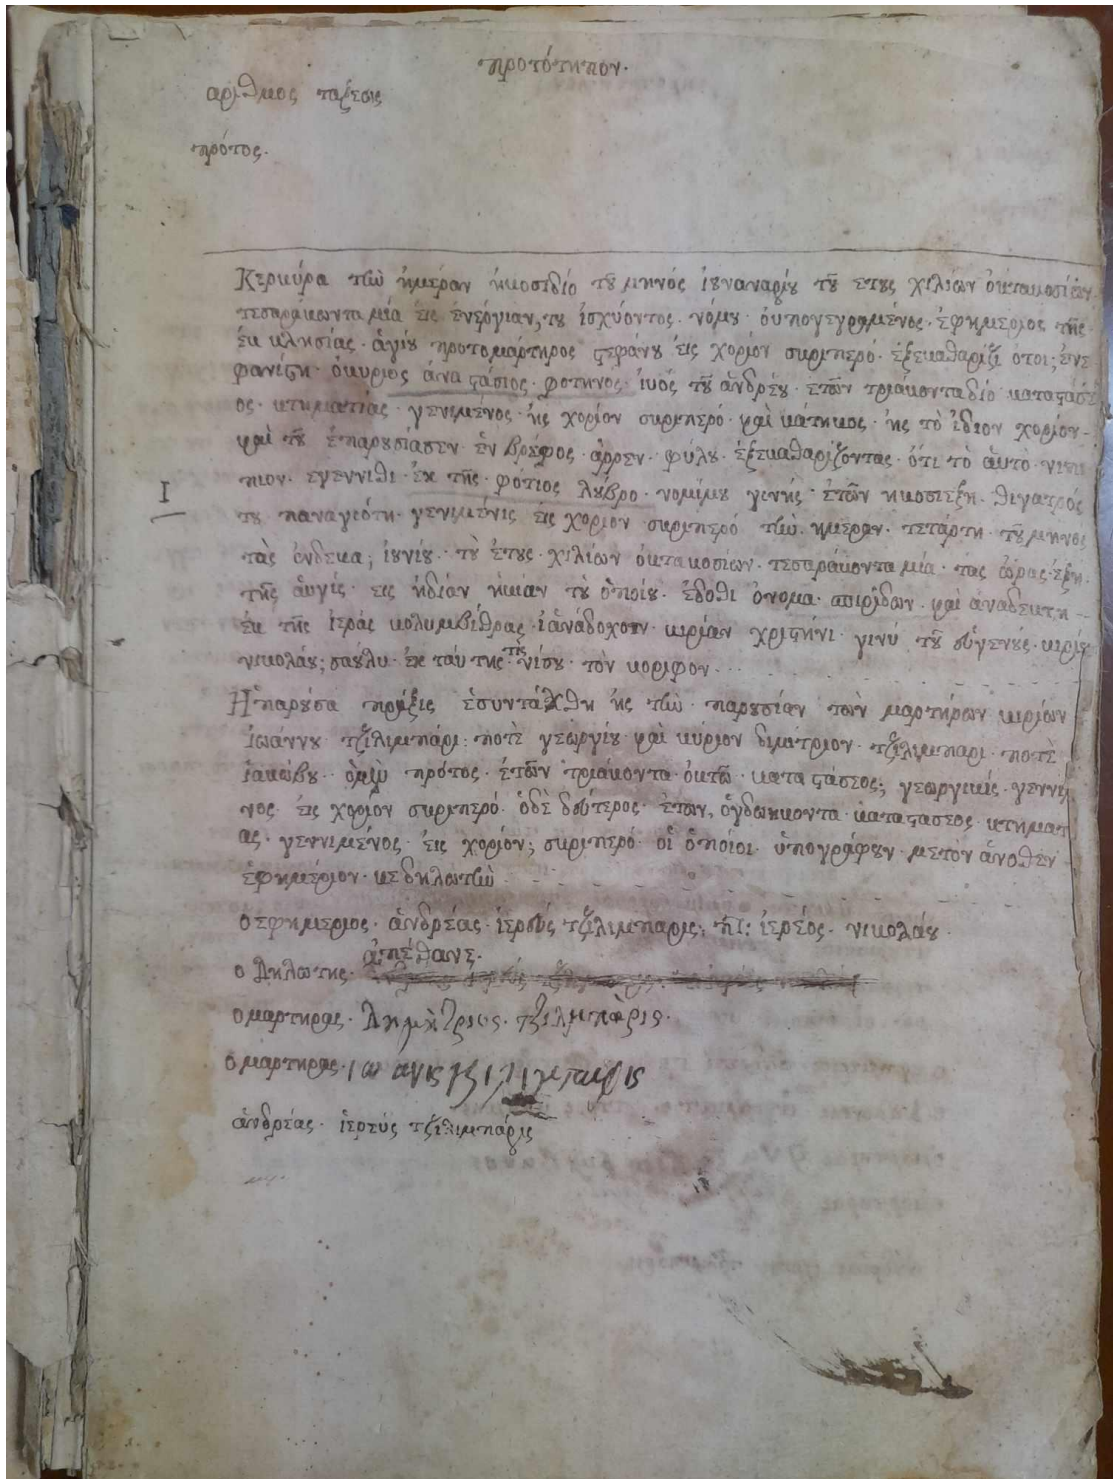 προτότηπον.
αριθμος ταξεος
πρότος.
Κερκύρα τὴν ἡμέραν ἠκοσιδίο τȣ μηνός ἰȣναναρίȣ τȣ ετȣς χιλίων ὀκτακοσίων
τεσαράκωντα μία εἰς ἐνέργιαν, τȣ ἰσχύοντος. νόμȣ. ὁυπογεγραμένος. ἐφημεριος τῆς
ἐκκλησίας. ἁγίȣ προτομάρτηρος ϛεφάνȣ εἰς χορίον σιρμπερό. ἐξεκαθαρίζι ότοι; ἐνε
φανίϛη. ὁκυριος ἀναϛάσιος. φοτηνος. ἱυός τȣ ἀνδρέȣ. ἐτῶν τριάκονταδίο καταϛάσε
ος. κτηματίας. γενιμένος. ἠς χορίον σιρμπερό. καὶ κάτηκος. ἠς τὸ ἰδιον χορίον-
καὶ τȣ ἐπαρȣσίασεν ἓν βρέφος. ἄρρεν. φύλȣ. ἐξεκαθαρίζοντας. ὁτι τὸ ἀυτὸ. νιπι
πιον. εγεννιθι. ἐκ τῆς. φότιος λȣβρο. νομίμȣ γενής. ἐτῶν ηκοσιεξη. θιγατρός
τȣ παναγιότη. γενιμένις εις χορίον σιρμπερό τὴν. ημεραν. τετάρτη. τȣ μηνος
τὰς ἑνδεκα; ἰȣνίȣ. τȣ ἐτȣς. χιλίων ὀκτακοσίων. τεσσράκοντα μία. τας ὥρας. ἐξη.
τῆς ἀυγίς. εις ἠδίαν ἠκίαν τȣ ὁποίȣ. ἐδοθι ὀνομα. σπιρίδων. καὶ ἀναδεκτη
ἐκ τῆς ἱεράς κολυμβίθρας. ἱανάδοχοσιν. κιρίαν χριϛηνι. γινύ τȣ ἐυγενȣς. κιρίȣ
νικολάȣ; σαȣλι. ἐκ ταύτης τις νίσȣ. τὸν κοριφον...
Ἡπαρȣσα πράξις ἐσυντάχθη ἠς τὴν. παρȣσίαν τῶν μαρτήρων κιρίων
ἰωάννȣ τζιλιμπάρι. ποτὲ γεωργίȣ. καὶ κύριον διμιτριον. τζιλιμπαρι. ποτὲ
ἰακώβȣ. ὁμὲν πρότος. ἐτῶν τριάκοντα. ὀκτῶ. καταϛάσεος; γεωργικίς. γεννιμέ
νος. ἐις χορίον σιρμπερό. ὁδὲ δεύτερος. ἐτων, ὀγδωηκοντα. καταϛασεος. κτηματ
ας. γεννιμένος. ἐις χορίον; σιρμπερό. οἱ ὁποίοι. ὑπογράφȣν. μετὸν ἀνοθεν
ἐφημέριον. κε δηλωτὴν
ο εφημεριος. ἀνδρέας. ἱερεύς τζιλιμπαρις; π: ἱερέος. νικολάȣ.
ἀπέθανε.
ο Δηλωτης.
ο μαρτηρας. Δημήτριος. τζιλμπαρις.
ο μαρτηρας. ιωάνις τζιλιμπαρις
ἀνδρέας. ἱερεύς τζιλιμπάρις
I